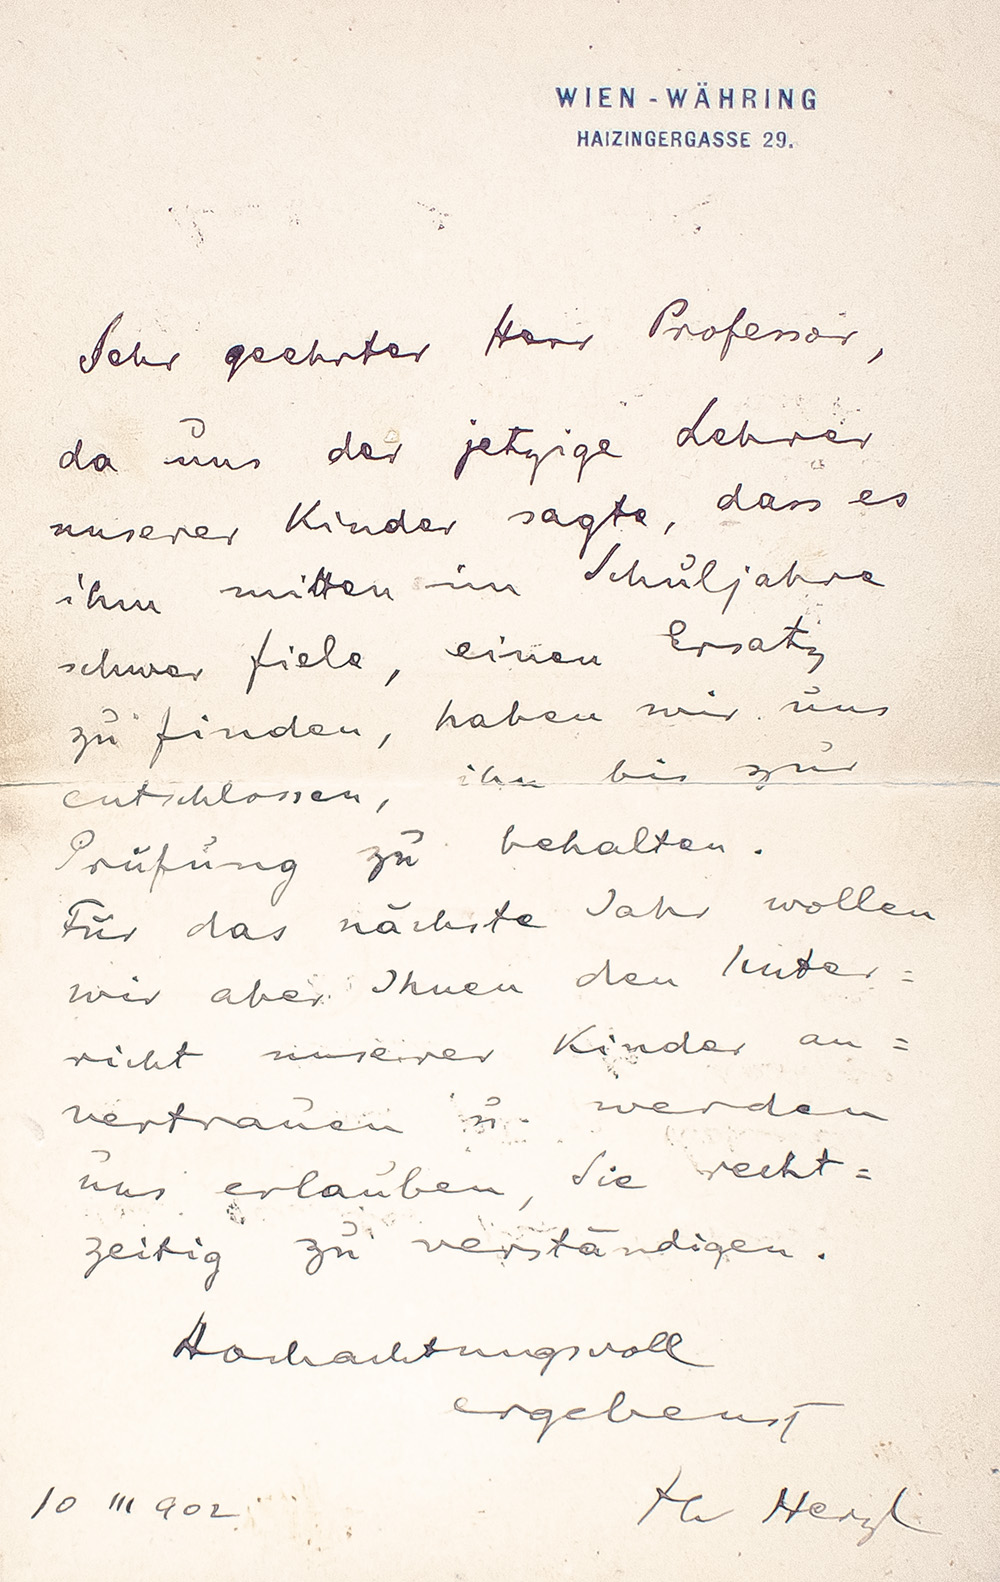 WIEN - WÄHRING
HAIZINGERGASSE 29.
Sehr geehrter Herr Professor,
da uns der jetzige Lehrer
unserer Kinder sagte, dass es
ihm mitten im Schuljahre
schwer fiele, einen Ersatz
zu finden, haben wir uns
entschlossen, ihn bis zur
Prüfung zu behalten.
Für das nächste Jahr wollen
wir aber Ihnen den Unter=
richt unserer Kinder an=
vertrauen u. werden
uns erlauben, Sie recht=
zeitig zu verständigen.
Hochachtungsvoll
ergebenst
Th Herzl
10 III 902